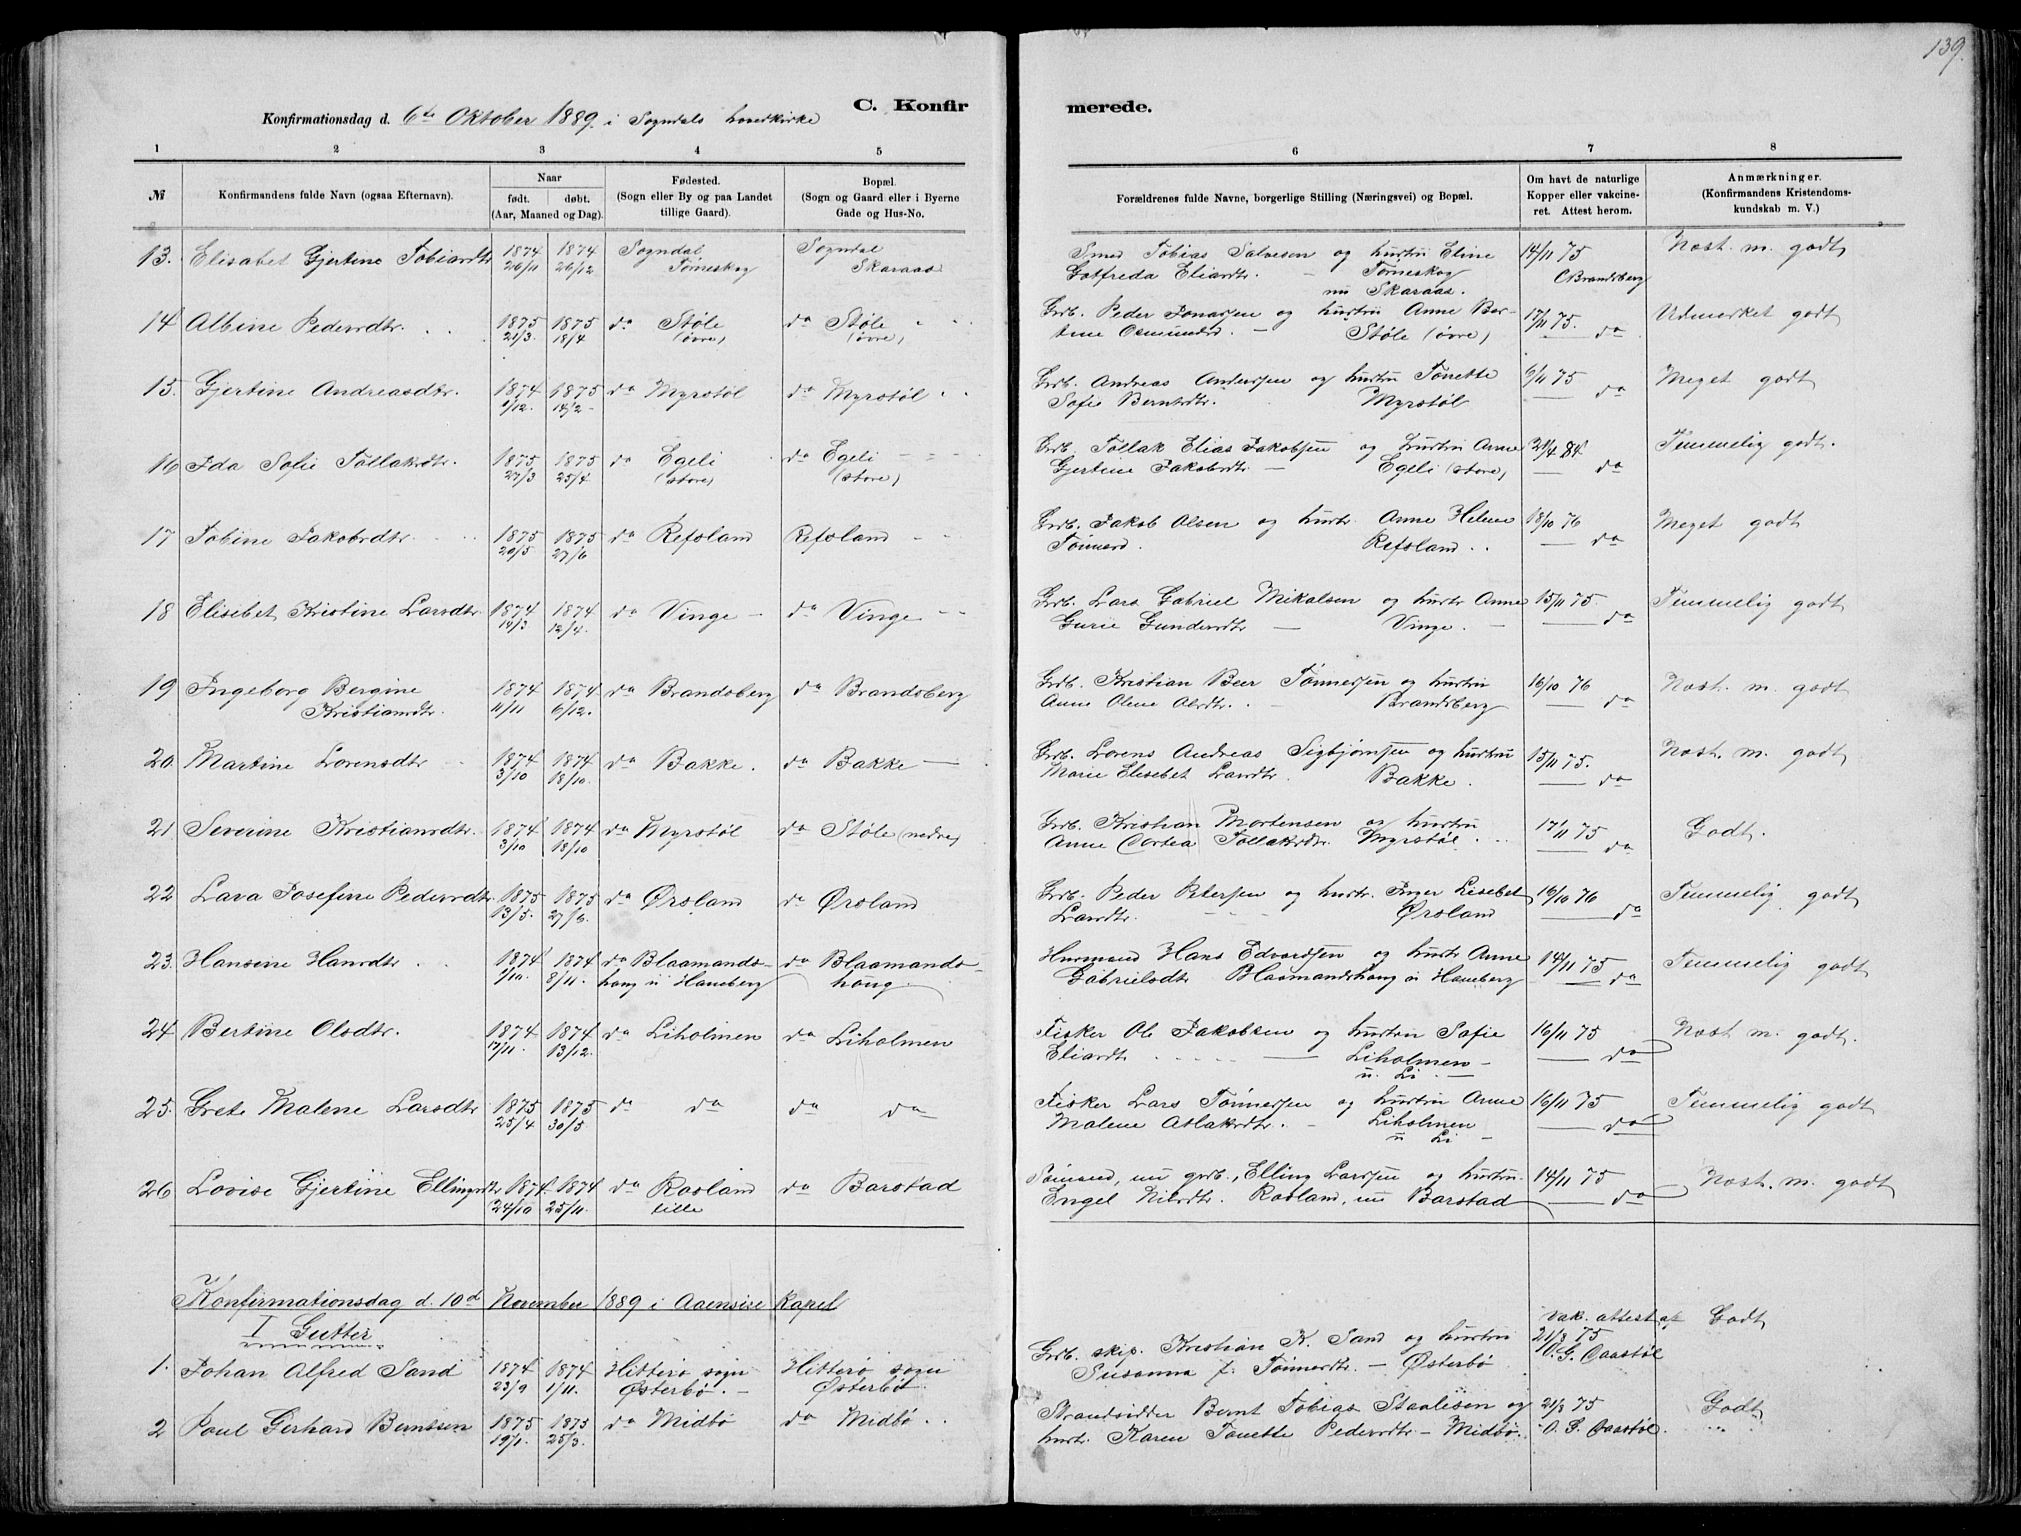 139.
C. Konfirmerede.
Konfirmationsdag d. 6te Oktober 1889 i Sogndals hovedkirke
1 2 3 4 5 6 7 8
№
Konfirmandens fulde Navn (ogsaa Efternavn).
Naar
født. døbt.
(Aar, Maaned og Dag).
Fødested.
(Sogn eller By og paa Landet
tillige Gaard).
Bopæl.
(Sogn og Gaard eller i Byerne
Gade og Hus-No.
Forældrenes fulde Navne, borgerlige Stilling (Næringsvei) og Bopæl.
Om havt de naturlige
Kopper eller vakcine-
ret. Attest herom.
Anmærkninger.
(Konfirmandens Kristendoms-
kundskab m. V.)
13. Elisabet Gjertine Tobiasdtr 1874 1874 Sogndal Sogndal Smed Tobias Salvesen og hustru Eline 14/11 75 Næst. m. godt
26/11 26/12 Tønneskog Skaraas Gotfreda Eliasdtr. – Tønneskog CBrandsberg
nu Skaraas.
14 Albine Pedersdtr. 1875 1875 do Støle do Støle Grb. Peder Jonassen og hustru Anne Ber- 17/11 75. Udmerket godt
21/3. 18/4 (øvre) (øvre) tine Osmundsd. – Støle (øvre) do
15. Gjertine Andreasdtr. 1874 1875 do Myrstøl do Myrstøl Grb. Andreas Andersen og hustru Tonette 9/11 75 Meget godt
/12. 14/2 Sofie Berntsdtr. Myrstøl do
16 Ida Sofie Tollaksdtr. 1875 1875 do Egeli do Egeli Grb. Tollak Elias Jakobsen og hustru Anne 21/4 84. Temmelig godt.
27/3 25/4 (store) (store) Gjertine Jakobsdtr – Egeli (store) do
17 Tobine Jakobsdtr. 1875 1875 do Refsland Refsland Grb. Jakob Olsen og hustr. Anne Helene 18/10 76 Meget godt
20/5 27/6 Tønnesd. Refsland do
18 Elisebet Kristine Larsdtr. 1874 1874 do Vinge do Vinge Grb. Lars Gabriel Mikalsen og hustr Anne 15/11 75. Temmelig godt
14/3 12/4. Gurie Gundersdtr – Vinge. do
19 Ingeborg Bergine 1874 1874 do Brandsberg do Brandsberg Grb. Kristian Beer Tønnessen og hustru 16/10 76 Næst. m. godt
Kristiansdtr. 11/11 6/12. Anne Olene Olsdtr. Brandsberg do
20. Martine Lorensdtr 1874 1874 do Bakke. do Bakke Grb. Lorens Andreas Sigbjørnsen og hustru 15/11 75. Næst. m. godt
3/10 18/10. Marie Elisebet Larsdtr. Bakke. do
21 Severine Kristiansdtr. 1874 1874 do Myrstøl do Støle (nedre) Grb. Kristian Mortensen og hustru 17/11 75 Godt.
3/10 18/10 Anne Dortea Tollaksdtr. Myrstøl do
22 Lava Josefine Pedersdtr. 1875 1875 do Ørsland do Ørsland Grb. Peder Petersen og hustr. Inger Lisebet 16/10 76 Temmelig godt
13/5. 27/6. Larsdtr. Ørsland do
23. Hansine Hansdtr 1874 1874 do Blaamands- do Blaamands- Husmand Hans Edvardsen og hustr Anne 14/11 75 Temmelig godt
/10. 8/11. houg u Haneberg houg. Gabrielsdtr Blaamandshoug u Haneberg do
24. Bertine Olsdtr. 1874 1874 do Liholmen do Liholmen Fisker Ole Jakobsen og hustru Sofie 16/11 75 Næst m. godt.
17/11. 13/12. Eliasdt – Liholmen do
u. Li. –
25. Grete Malene Larsdtr 1875 1875 do do do do Fisker Lars Tønnessen og hustru Anne 16/11 75 Temmelig godt
25/4 30/5 Malene Aslaksdtr. – Liholmen do
u Li –
26 Lovise Gjertine Ellingsdtr 1874 1874 do Rosland do Barstad Sømand, nu grb., Elling Larssen og hustru 14/11 75 Næst. m. godt
24/10 25/11. lille Engel Nilsdtr. Rosland, nu Barstad do
Konfirmationsdag d. 10de November 1889 i Aaensire kapel
I Gutter
vak. attest af
1. Johan Alfred Sand 1874 1874 Hitterø sogn Hitterø sogn Grb. skip. Kristian K. Sand og hustru 21/8 75 Godt
23/9 1/11. Østerbø. – Østerbø. Susanna J. Tønnesdtr. – Østerbø O. G. Aaastøl
2 Poul Gerhard Berntsen 1875 1875 do Midbø do Midbø Strandsidder Bernt Tobias Staalesen og 21/8 75 Godt
19/1. 25/3. hustr. Karen Tonette Pedersdtr – Midbø.